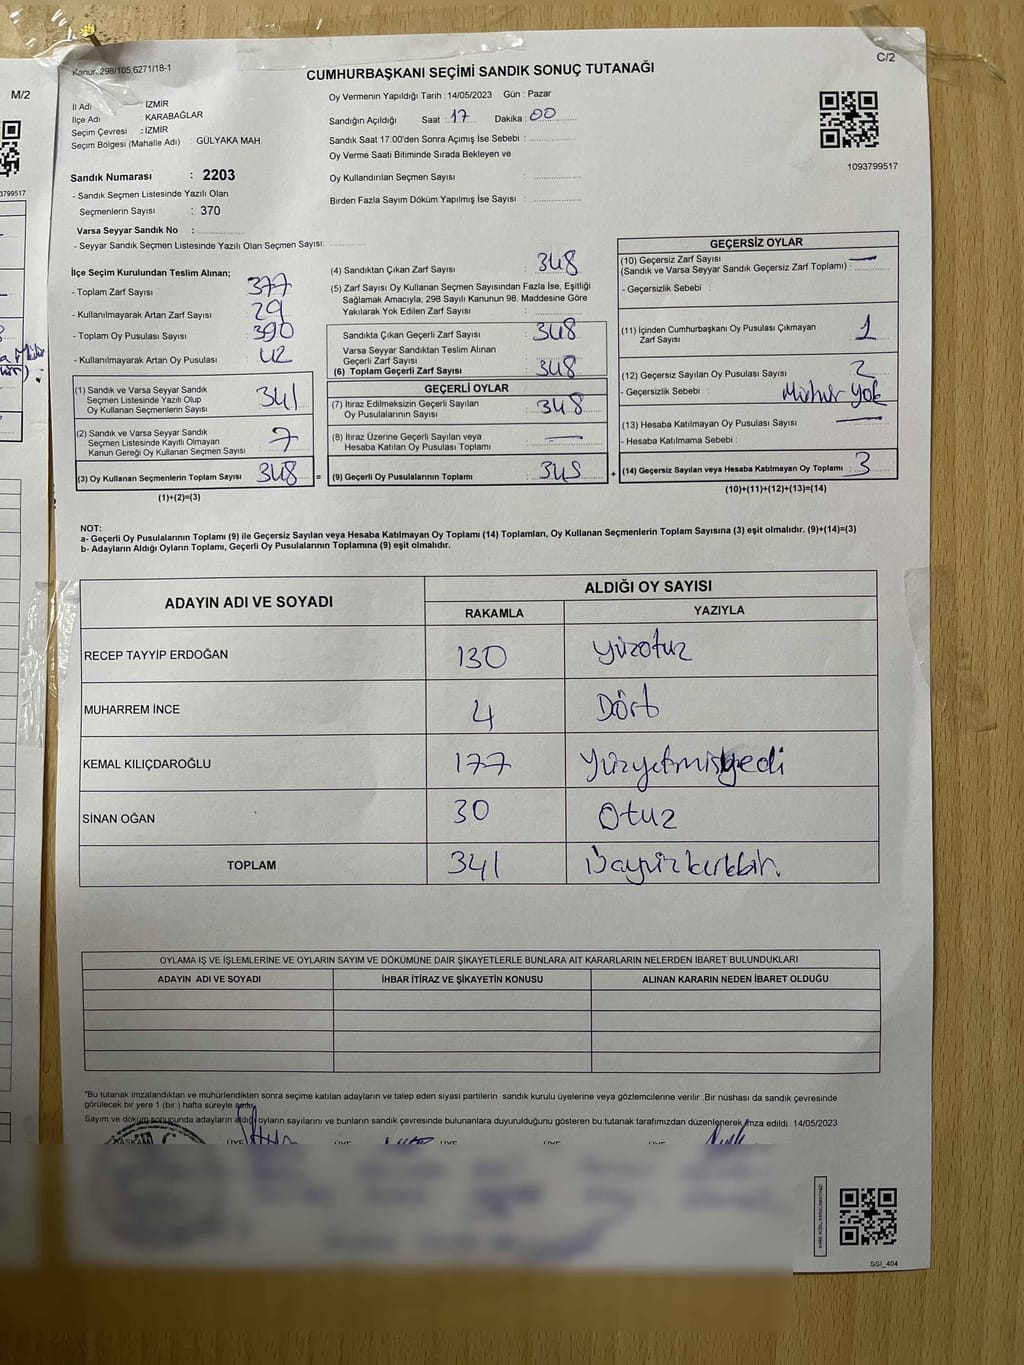 M/2
Kanun: 298/105;6271/18-1
CUMHURBAŞKANI SEÇİMİ SANDIK SONUÇ TUTANAĞI
C/2
İl Adı : İZMİR
İlçe Adı : KARABAĞLAR
Seçim Çevresi : İZMİR
Seçim Bölgesi (Mahalle Adı) : GÜLYAKA MAH.
Oy Vermenin Yapıldığı Tarih : 14/05/2023 Gün : Pazar
Sandığın Açıldığı Saat : 17 Dakika : 00
Sandık Saat 17:00'den Sonra Açımış İse Sebebi :
Oy Verme Saati Bitiminde Sırada Bekleyen ve
Oy Kullandırılan Seçmen Sayısı :
Birden Fazla Sayım Döküm Yapılmış İse Sayısı :
1093799517
3799517
Sandık Numarası : 2203
- Sandık Seçmen Listesinde Yazılı Olan
Seçmenlerin Sayısı : 370
Varsa Seyyar Sandık No :
- Seyyar Sandık Seçmen Listesinde Yazılı Olan Seçmen Sayısı:
İlçe Seçim Kurulundan Teslim Alınan;
- Toplam Zarf Sayısı : 377
- Kullanılmayarak Artan Zarf Sayısı : 29
- Toplam Oy Pusulası Sayısı : 390
- Kullanılmayarak Artan Oy Pusulası : 42
(1) Sandık ve Varsa Seyyar Sandık
Seçmen Listesinde Yazılı Olup
Oy Kullanan Seçmenlerin Sayısı : 341
(2) Sandık ve Varsa Seyyar Sandık
Seçmen Listesinde Kayıtlı Olmayan
Kanun Gereği Oy Kullanan Seçmen Sayısı : 7
(3) Oy Kullanan Seçmenlerin Toplam Sayısı : 348 =
(1)+(2)=(3)
(4) Sandıktan Çıkan Zarf Sayısı : 348
(5) Zarf Sayısı Oy Kullanan Seçmen Sayısından Fazla İse, Eşitliği
Sağlamak Amacıyla, 298 Sayılı Kanunun 98. Maddesine Göre
Yakılarak Yok Edilen Zarf Sayısı :
Sandıkta Çıkan Geçerli Zarf Sayısı : 348
Varsa Seyyar Sandıktan Teslim Alınan
Geçerli Zarf Sayısı :
(6) Toplam Geçerli Zarf Sayısı : 348
GEÇERLİ OYLAR
(7) İtiraz Edilmeksizin Geçerli Sayılan
Oy Pusulalarının Sayısı : 348
(8) İtiraz Üzerine Geçerli Sayılan veya
Hesaba Katılan Oy Pusulası Toplamı : —
(9) Geçerli Oy Pusulalarının Toplamı : 345 +
GEÇERSİZ OYLAR
(10) Geçersiz Zarf Sayısı : —
(Sandık ve Varsa Seyyar Sandık Geçersiz Zarf Toplamı)
- Geçersizlik Sebebi :
(11) İçinden Cumhurbaşkanı Oy Pusulası Çıkmayan
Zarf Sayısı : 1
(12) Geçersiz Sayılan Oy Pusulası Sayısı : 2
- Geçersizlik Sebebi : Mühür Yok
(13) Hesaba Katılmayan Oy Pusulası Sayısı : —
- Hesaba Katılmama Sebebi :
(14) Geçersiz Sayılan veya Hesaba Katılmayan Oy Toplamı : 3
(10)+(11)+(12)+(13)=(14)
NOT:
a- Geçerli Oy Pusulalarının Toplamı (9) ile Geçersiz Sayılan veya Hesaba Katılmayan Oy Toplamı (14) Toplamları, Oy Kullanan Seçmenlerin Toplam Sayısına (3) eşit olmalıdır. (9)+(14)=(3)
b- Adayların Aldığı Oyların Toplamı, Geçerli Oy Pusulalarının Toplamına (9) eşit olmalıdır.
ADAYIN ADI VE SOYADI ALDIĞI OY SAYISI
RAKAMLA YAZIYLA
RECEP TAYYİP ERDOĞAN 130 Yüzotuz
MUHARREM İNCE 4 Dört
KEMAL KILIÇDAROĞLU 177 Yüzyetmişyedi
SİNAN OĞAN 30 Otuz
TOPLAM 341 Üçyüzkırkbir
OYLAMA İŞ VE İŞLEMLERİNE VE OYLARIN SAYIM VE DÖKÜMÜNE DAİR ŞİKAYETLERLE BUNLARA AİT KARARLARIN NELERDEN İBARET BULUNDUKLARI
ADAYIN ADI VE SOYADI İHBAR İTİRAZ VE ŞİKAYETİN KONUSU ALINAN KARARIN NEDEN İBARET OLDUĞU
*Bu tutanak imzalandıktan ve mühürlendikten sonra seçime katılan adayların ve talep eden siyasi partilerin sandık kurulu üyelerine veya gözlemcilerine verilir .Bir nüshası da sandık çevresinde
görülecek bir yere 1 (bir ) hafta süreyle asılır.
Sayım ve döküm sonucunda adayların aldığı oyların sayılarını ve bunların sandık çevresinde bulunanlara duyurulduğunu gösteren bu tutanak tarafımızdan düzenlenerek imza edildi. 14/05/2023
BAŞKAN ÜYE ÜYE ÜYE ÜYE
SSI_404